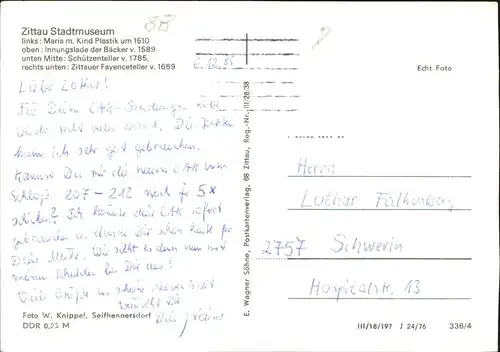 Zittau Stadtmuseum
links : Maria m. Kind Plastik um 1510
oben : Innungslade der Bäcker v. 1589
unten Mitte : Schützenteller v. 1785,
rechts unten : Zittauer Fayenceteller v. 1669
Lieber Lothar!
Für Deine CAK-Sendungen
recht vielen Dank. Die Karten
kann ich sehr gut gebrauchen.
Kannst Du mir die neuen CAK vom
Schloß 207 - 212 noch je 5x
schicken? Ich könnte die CAK sofort
Deine Mühe. Wie sieht es denn nun mit
meinen bei Dir aus?
Viele Grüße u. schöne
wünscht Dir
Foto W. Knippel, Seifhennersdorf
DDR 0,25 M
E. Wagner Söhne, Postkartenverlag, 88 Zittau, Reg.-Nr. III/28/38
6.12.88
Echt Foto
Herrn
Lothar Falkenberg
2757 Schwerin
Hospitalstr. 13
III/18/197 J 24/76 336/4